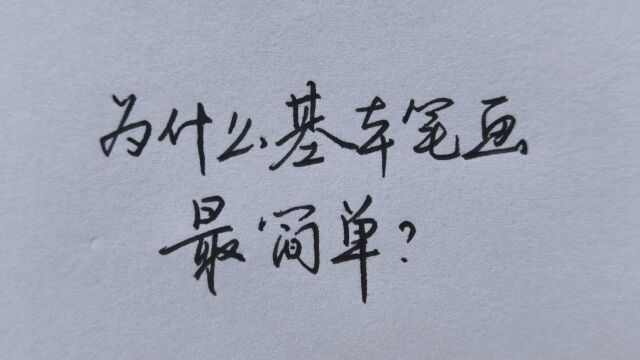 为什么基本笔画
最简单?